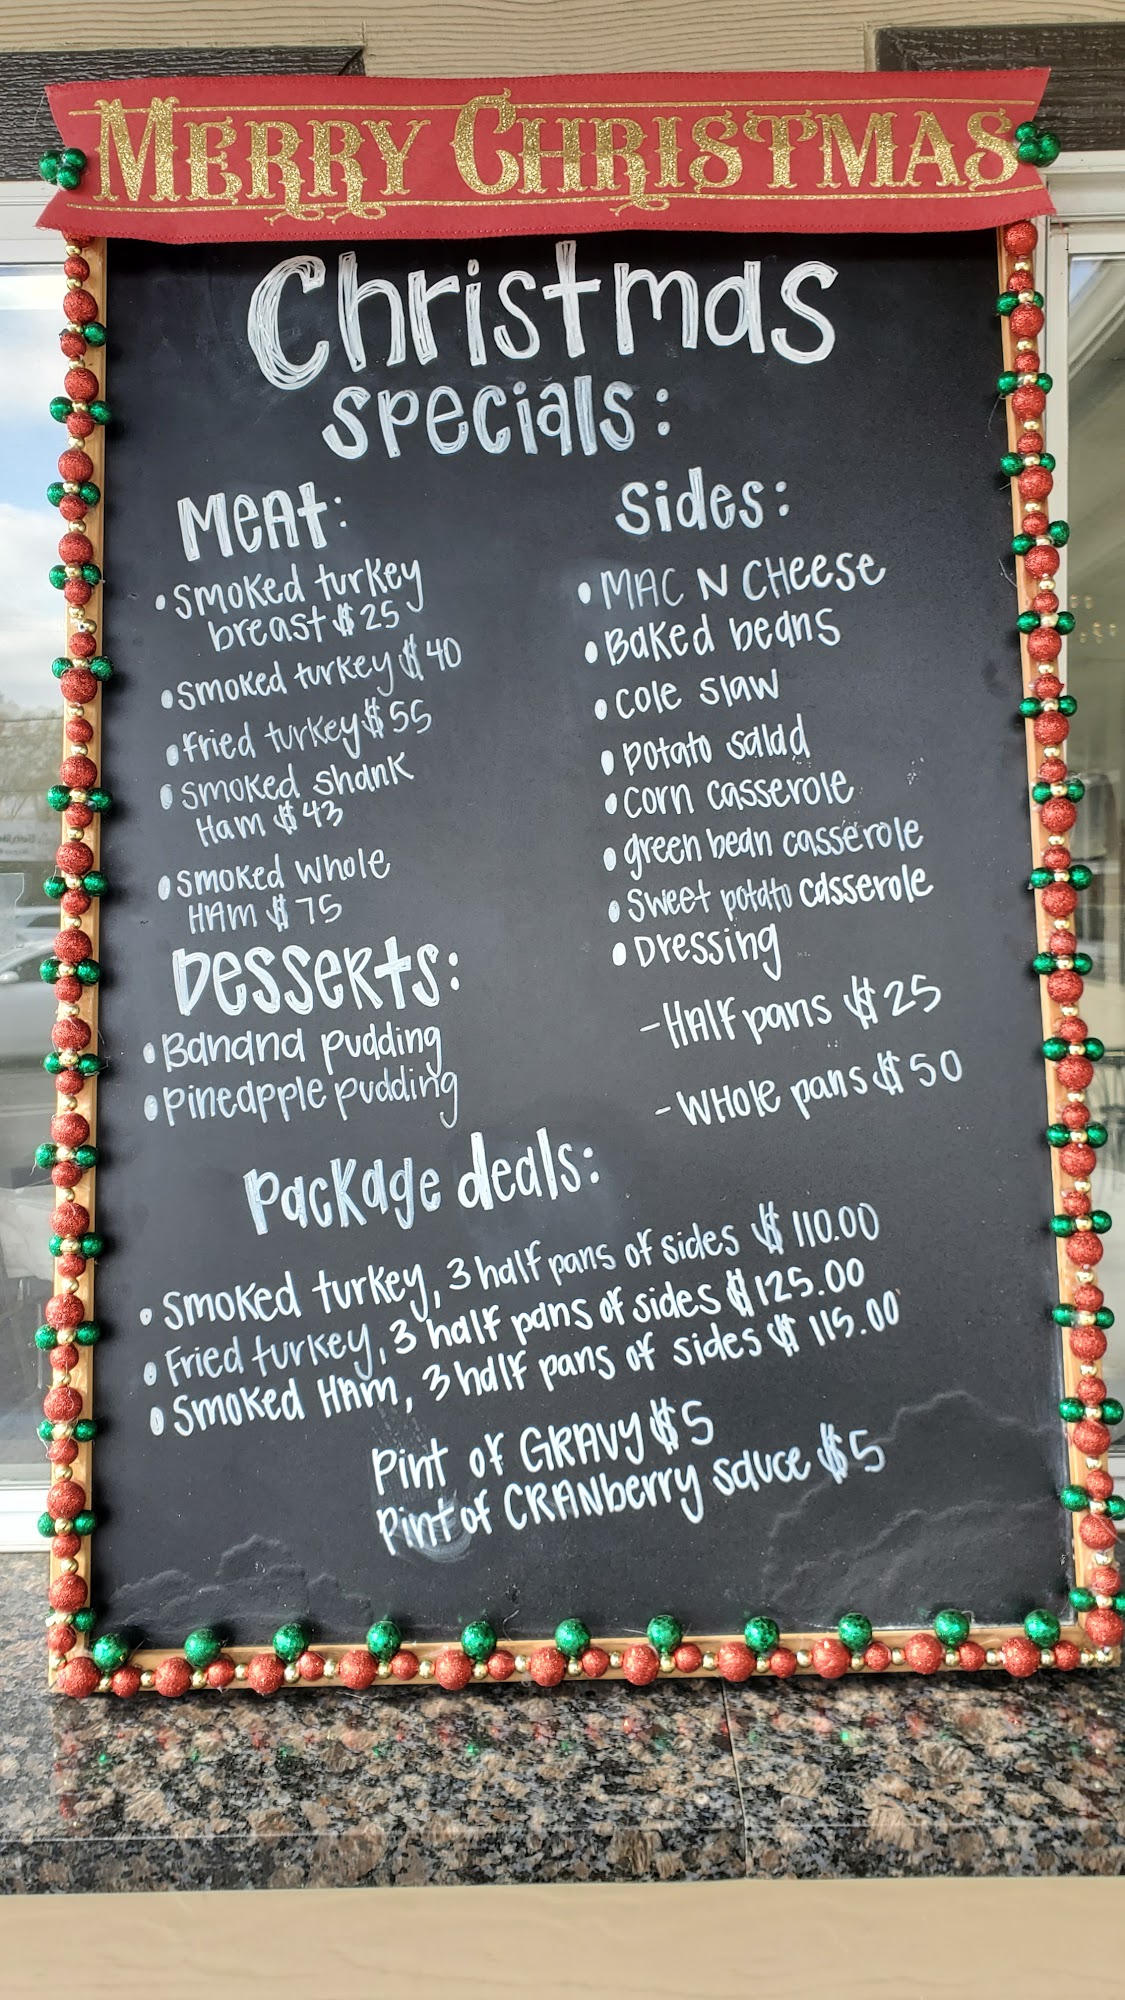 MERRY CHRISTMAS
Christmas
specials:
Meat:
• Smoked turkey
breast $25
• Smoked turkey $40
• Fried turkey $55
• Smoked shank
Ham $43
• Smoked whole
HAm $75
Desserts:
• Banana pudding
• Pineapple pudding
Sides:
• MAC N CHeese
• Baked beans
• Cole slaw
• potato salad
• Corn casserole
• green bean casserole
• Sweet potato casserole
• Dressing
- Half pans $25
- WHole pans $50
Package deals:
• Smoked turkey, 3 half pans of sides $110.00
• Fried turkey, 3 half pans of sides $125.00
• Smoked HAm, 3 half pans of sides $115.00
Pint of GRAVY $5
Pint of CRANberry sauce $5